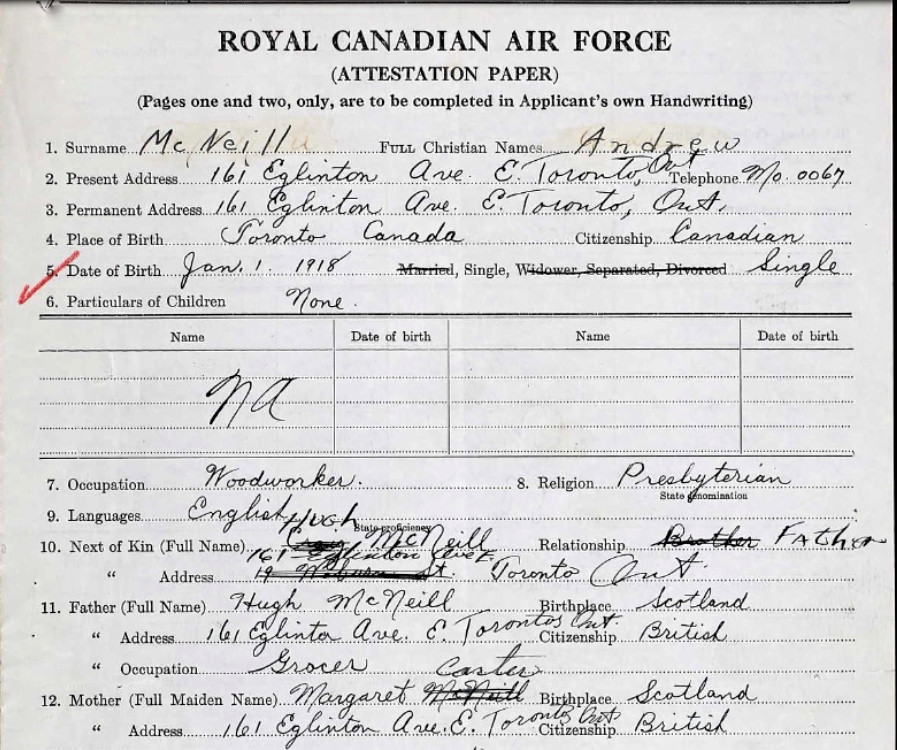 ROYAL CANADIAN AIR FORCE
(ATTESTATION PAPER)
(Pages one and two, only, are to be completed in Applicant's own Handwriting)
1. Surname Mc Neill FULL Christian Names Andrew
2. Present Address 161 Eglinton Ave. E. Toronto, Ont Telephone Mo. 0067
3. Permanent Address 161 Eglinton Ave. E. Toronto, Ont.
4. Place of Birth Toronto Canada Citizenship Canadian
5. Date of Birth Jan. 1. 1918 Married, Single, Widower, Separated, Divorced Single
6. Particulars of Children None.
Name Date of birth Name Date of birth
NA
7. Occupation Woodworker. 8. Religion Presbyterian
State denomination
9. Languages English
State proficiency
10. Next of Kin (Full Name) Hugh McNeill Relationship Brother Father
161 Eglinton Ave E.
" Address St. Toronto Ont.
11. Father (Full Name) Hugh McNeill Birthplace Scotland
" Address 161 Eglinton Ave. E. Toronto Ont. Citizenship British
" Occupation Grocer
12. Mother (Full Maiden Name) Margaret McNeill Birthplace Scotland
" Address 161 Eglinton Ave. E. Toronto Ont Citizenship British